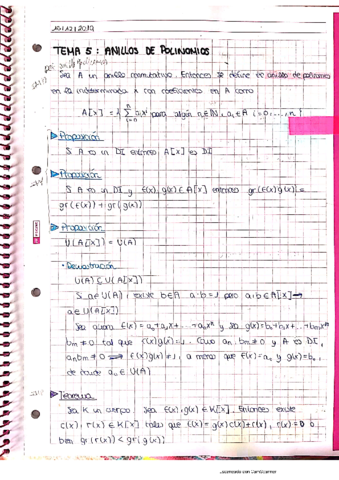 16/12/2019
TEMA 5: ANILLOS DE POLINOMIOS
Sea A un anillo conmutativo. Entonces se define el anillo de polinomios
en la indeterminada x con coeficientes en A como
A[x] = { Σ aᵢxⁱ para algún n∈ℕ, aᵢ∈A i=0,...,n }
Proposición
Si A es un DI entonces A[x] es DI
Proposición
Si A es un DI y f(x), g(x) ∈ A[x] entonces gr(f(x)g(x)) =
gr(f(x)) + gr(g(x))
Proposición
U(A[x]) = U(A)
• Demostración
U(A) ⊆ U(A[x])
Si a∈U(A), existe b∈A a·b=1 pero a,b∈A[x] →
a∈U(A[x])
Sea ahora f(x)=a₀+a₁x+...+aₙxⁿ y sea g(x)=b₀+b₁x+...+bₘxᵐ
bₘ≠0 tal que f(x)g(x)=1. Como aₙ,bₘ≠0 y A es DI,
aₙbₘ≠0 ⟹ f(x)g(x)≠1, a menos que f(x)=a₀ y g(x)=b₀,
de donde a₀∈U(A)
Teorema
Sea K un cuerpo. Sea f(x), g(x) ∈ K[x]. Entonces existe
c(x), r(x) ∈ K[x] tales que f(x)=g(x)c(x)+r(x), r(x)=0 ó
bien gr(r(x)) < gr(g(x))
Escaneado con CamScanner